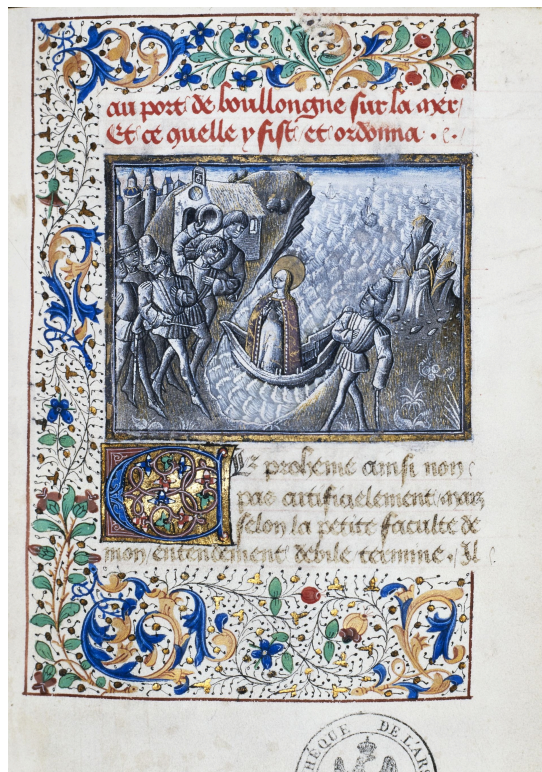 au port de boullongne sur la mer
Et ce quelle y fist et ordonna
Cez proheme ainsi non
pas artificielement mais
selon la petite faculte de
mon entendement debile termine. Il
THÈQUE DE L'AR